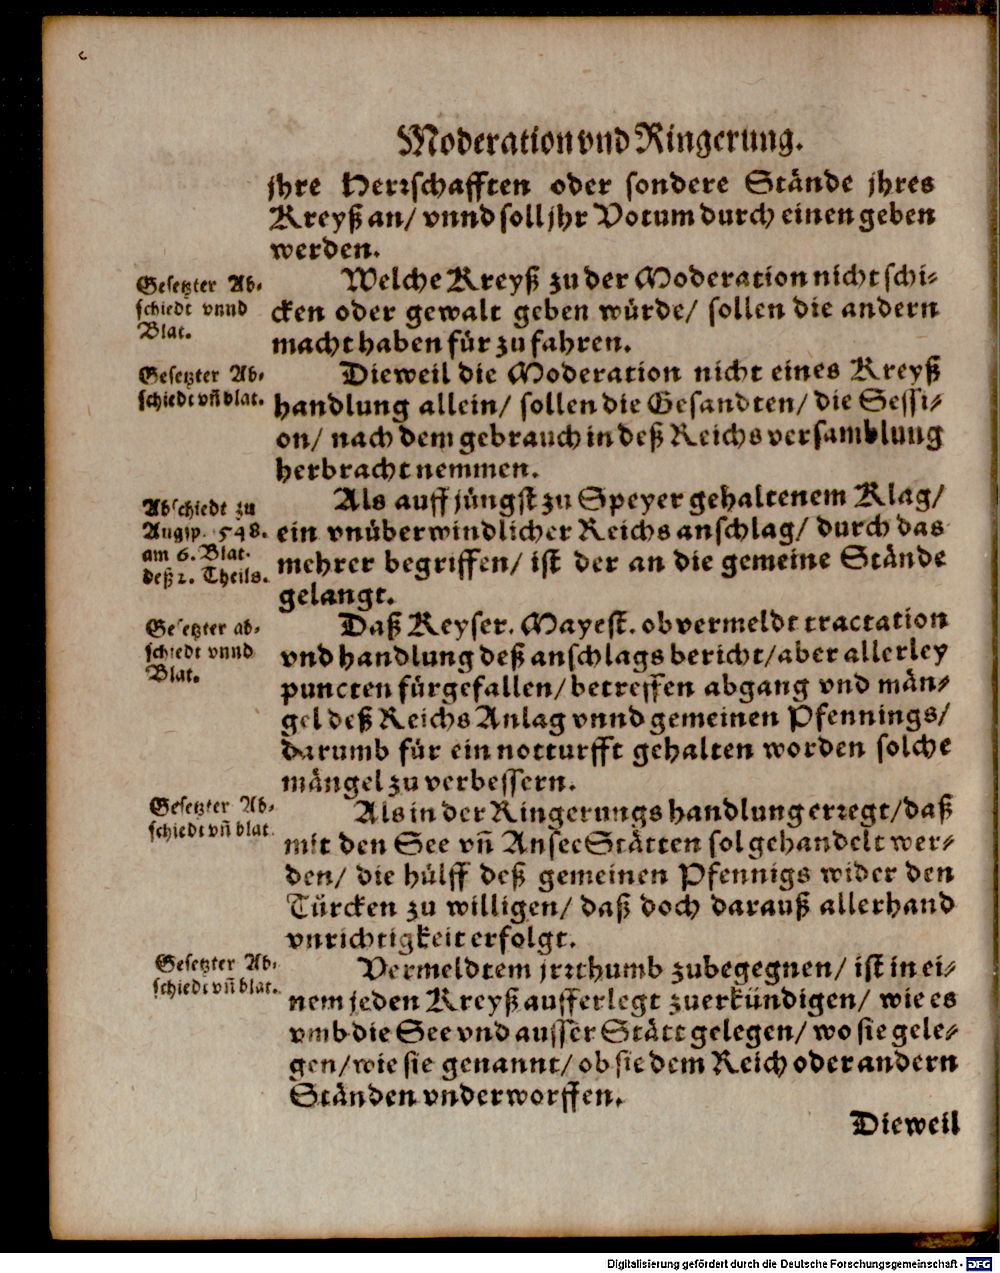 Moderation vnd Ringerung.
jhre Herrschafften oder sondere Stände jhres
Kreyß an/ vnnd soll jhr Votum durch einen geben
werden.
Gesetzter Ab-
schiedt vnnd
Blat.
Welche Kreyß zu der Moderation nicht schi-
cken oder gewalt geben würde/ sollen die andern
macht haben für zu fahren.
Gesetzter Ab-
schiedt vñ blat.
Dieweil die Moderation nicht eines Kreyß
handlung allein/ sollen die Gesandten/ die Sessi-
on/ nach dem gebrauch in deß Reichs versamblung
herbracht nemmen.
Abschiedt zu
Augsp. 548.
am 6. Blat.
deß 2. Theils.
Als auff jüngst zu Speyer gehaltenem Klag/
ein vnüberwindlicher Reichs anschlag/ durch das
mehrer begriffen/ ist der an die gemeine Stände
gelangt.
Gesetzter ab-
schiedt vnnd
Blat.
Daß Keyser. Mayest. ob vermeldt tractation
vnd handlung deß anschlags bericht/ aber allerley
puncten fürgefallen/ betreffen abgang vnd män-
gel deß Reichs Anlag vnnd gemeinen Pfennings/
darumb für ein notturfft gehalten worden solche
mängel zu verbessern.
Gesetzter Ab-
schiedt vñ blat.
Als in der Ringerungs handlung erregt/ daß
mit den See vñ Ansee Stätten sol gehandelt wer-
den/ die hülff deß gemeinen Pfennigs wider den
Türcken zu willigen/ daß doch darauß allerhand
vnrichtigkeit erfolgt.
Gesetzter Ab-
schiedt vñ blat.
Vermeldtem jrrthumb zubegegnen/ ist in ei-
nem jeden Kreyß aufferlegt zuerkündigen/ wie es
vmb die See vnd ausser Stätt gelegen/ wo sie gele-
gen/ wie sie genannt/ ob sie dem Reich oder andern
Ständen vnderworffen.
Dieweil
Digitalisierung gefördert durch die Deutsche Forschungsgemeinschaft - DFG